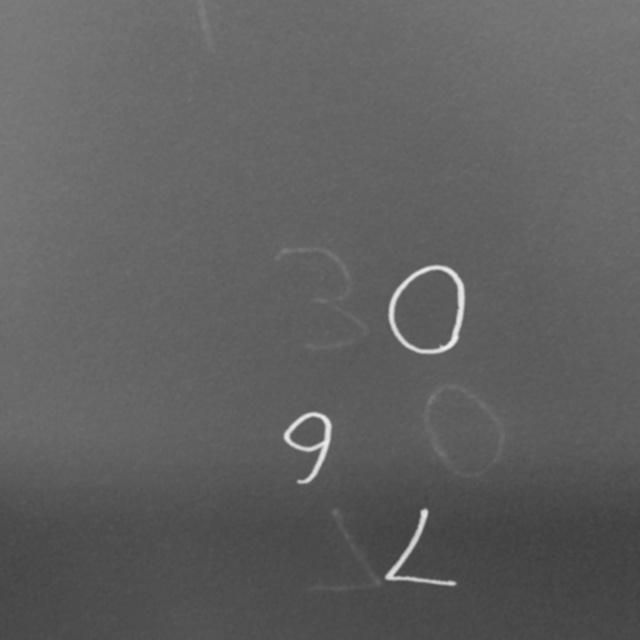 3 0
9 0
∠